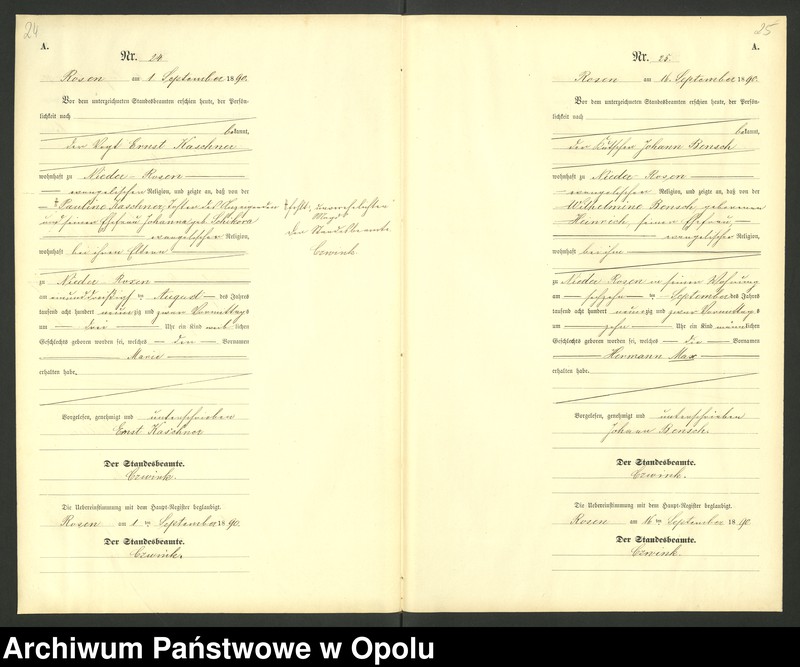 24
A.
Nr. 24
Rosen am 1 September 1890.
Vor dem unterzeichneten Standesbeamten erschien heute, der Persön-
lichkeit nach
bekannt,
der Vogt Ernst Kaschner
wohnhaft zu Nieder-Rosen
evangelischer Religion, und zeigte an, daß von der
Pauline Kaschner, Tochter des Anzeigenden
und seiner Ehefrau Johanna geb. Schikora
evangelischer Religion,
wohnhaft bei ihren Eltern
zu Nieder-Rosen
am einunddreißigsten August des Jahres
tausend acht hundert neunzig und zwar Vormittags
um drei Uhr ein Kind weiblichen
Geschlechts geboren worden sei, welches den Vornamen
Marie
erhalten habe.
Vorgelesen, genehmigt und unterschrieben
Ernst Kaschner
Der Standesbeamte.
Czwink.
Die Uebereinstimmung mit dem Haupt-Register beglaubigt.
Rosen am 1 ten September 1890.
Der Standesbeamte.
Czwink.
unverehelichten
Magd
Der Standesbeamte
Czwink.
25
A.
Nr. 25.
Rosen am 16. September 1890.
Vor dem unterzeichneten Standesbeamten erschien heute, der Persön-
lichkeit nach
bekannt,
der Kutscher Johann Bensch
wohnhaft zu Nieder Rosen
evangelischer Religion, und zeigte an, daß von der
Wilhelmine Bensch, geborenen
Heinrich, seiner Ehefrau,
evangelischer Religion,
wohnhaft bei ihm
zu Nieder Rosen in seiner Wohnung
am sechzehn ten September des Jahres
tausend acht hundert neunzig und zwar Vormittags
um zehn Uhr ein Kind männlichen
Geschlechts geboren worden sei, welches die Vornamen
Hermann Max
erhalten habe.
Vorgelesen, genehmigt und unterschrieben
Johann Bensch.
Der Standesbeamte.
Czwink.
Die Uebereinstimmung mit dem Haupt-Register beglaubigt.
Rosen am 16 ten September 1890.
Der Standesbeamte.
Czwink.
Archiwum Państwowe w Opolu